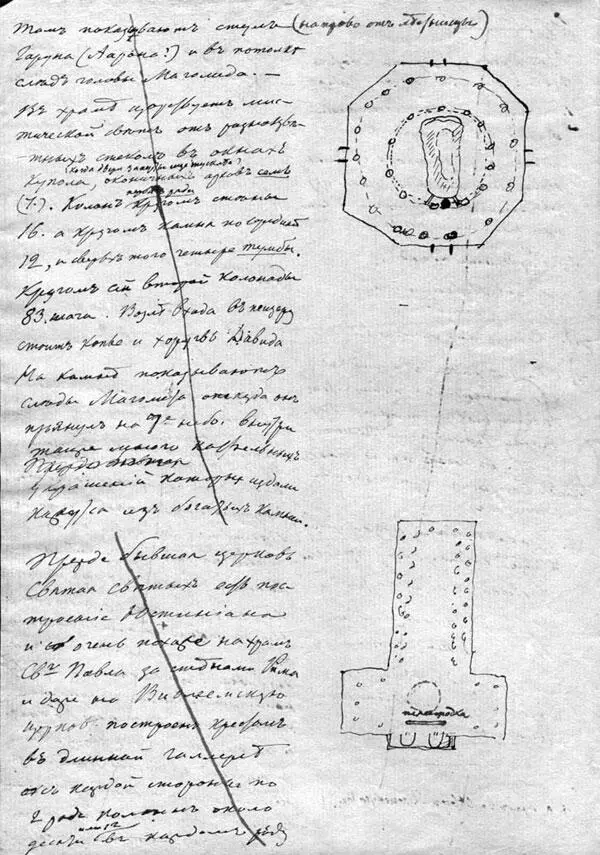 тамъ показываютъ стулъ (направо отъ
Гаруна (Аарона?) и въ потолкѣ
слѣдъ головы Магомеда. —
Въ храмѣ царствуетъ мис-
тической свѣтъ отъ разноцвѣ-
-тныхъ стеколъ въ окнахъ
купола,
(7.). Колонъ кругомъ стѣны
16. а кругомъ камня по срединѣ
12, и сверхъ того четыре
Кругомъ сей второй колонады
83. шага. Возлѣ входа въ пещеру
стоитъ копье и хоругвь Давида
На камнѣ показываютъ
слѣды Магомеда откуда онъ
прянулъ на 7е небо. внутри
также много
украшеній которыя издали
изъ богатыхъ камней.
Прежде бывшая церковь
Святая святыхъ есть пос-
троеніе Юстиніана
и очень похоже на храмъ
Свго Павла за стѣнами Рима
и даже на Вифлеемскую
церковь построенъ крестомъ
въ длинной галлереѣ
съ каждой стороны по
2 ряда колоннъ около
десяти
въ каждомъ ряду
перегородка